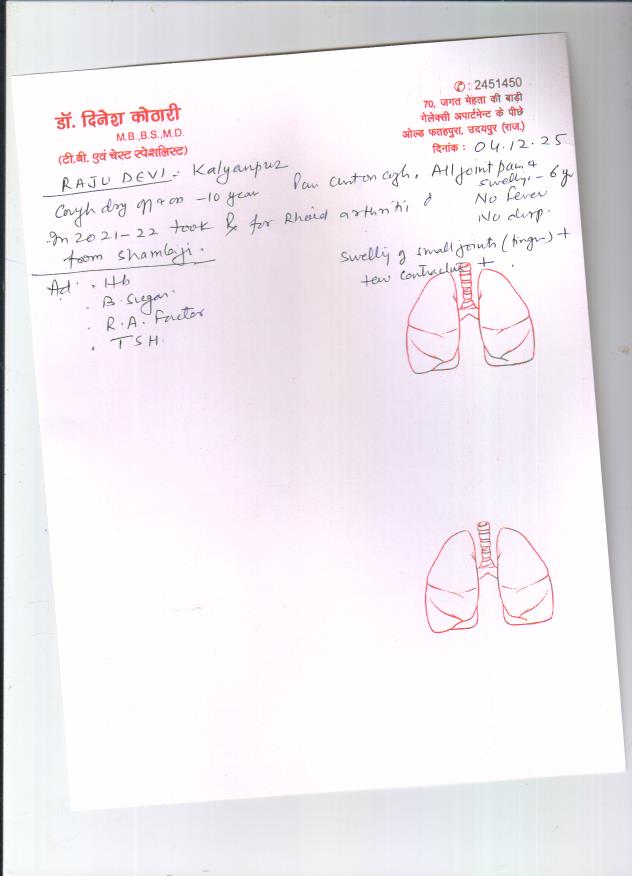 डॉ. दिनेश कोठारी
M.B.,B.S.,M.D.
(टी.बी. एवं चेस्ट स्पेशलिस्ट)
✆ : 2451450
70, जगत मेहता की बाड़ी
गेलेक्सी अपार्टमेन्ट के पीछे
ओल्ड फतहपुरा, उदयपुर (राज.)
दिनांक : 04.12.25
RAJU DEVI - Kalyanpur
Cough dry off & on - 10 year
Pain All joint pain +
swelling - 6 yr
In 2021-22 took Rx for arthritis
No fever
from Shamlaji.
swelling of small joints (finger) +
few contracture +
Ad . Hb
. B. Sugar.
. R.A. Factor
. TSH.